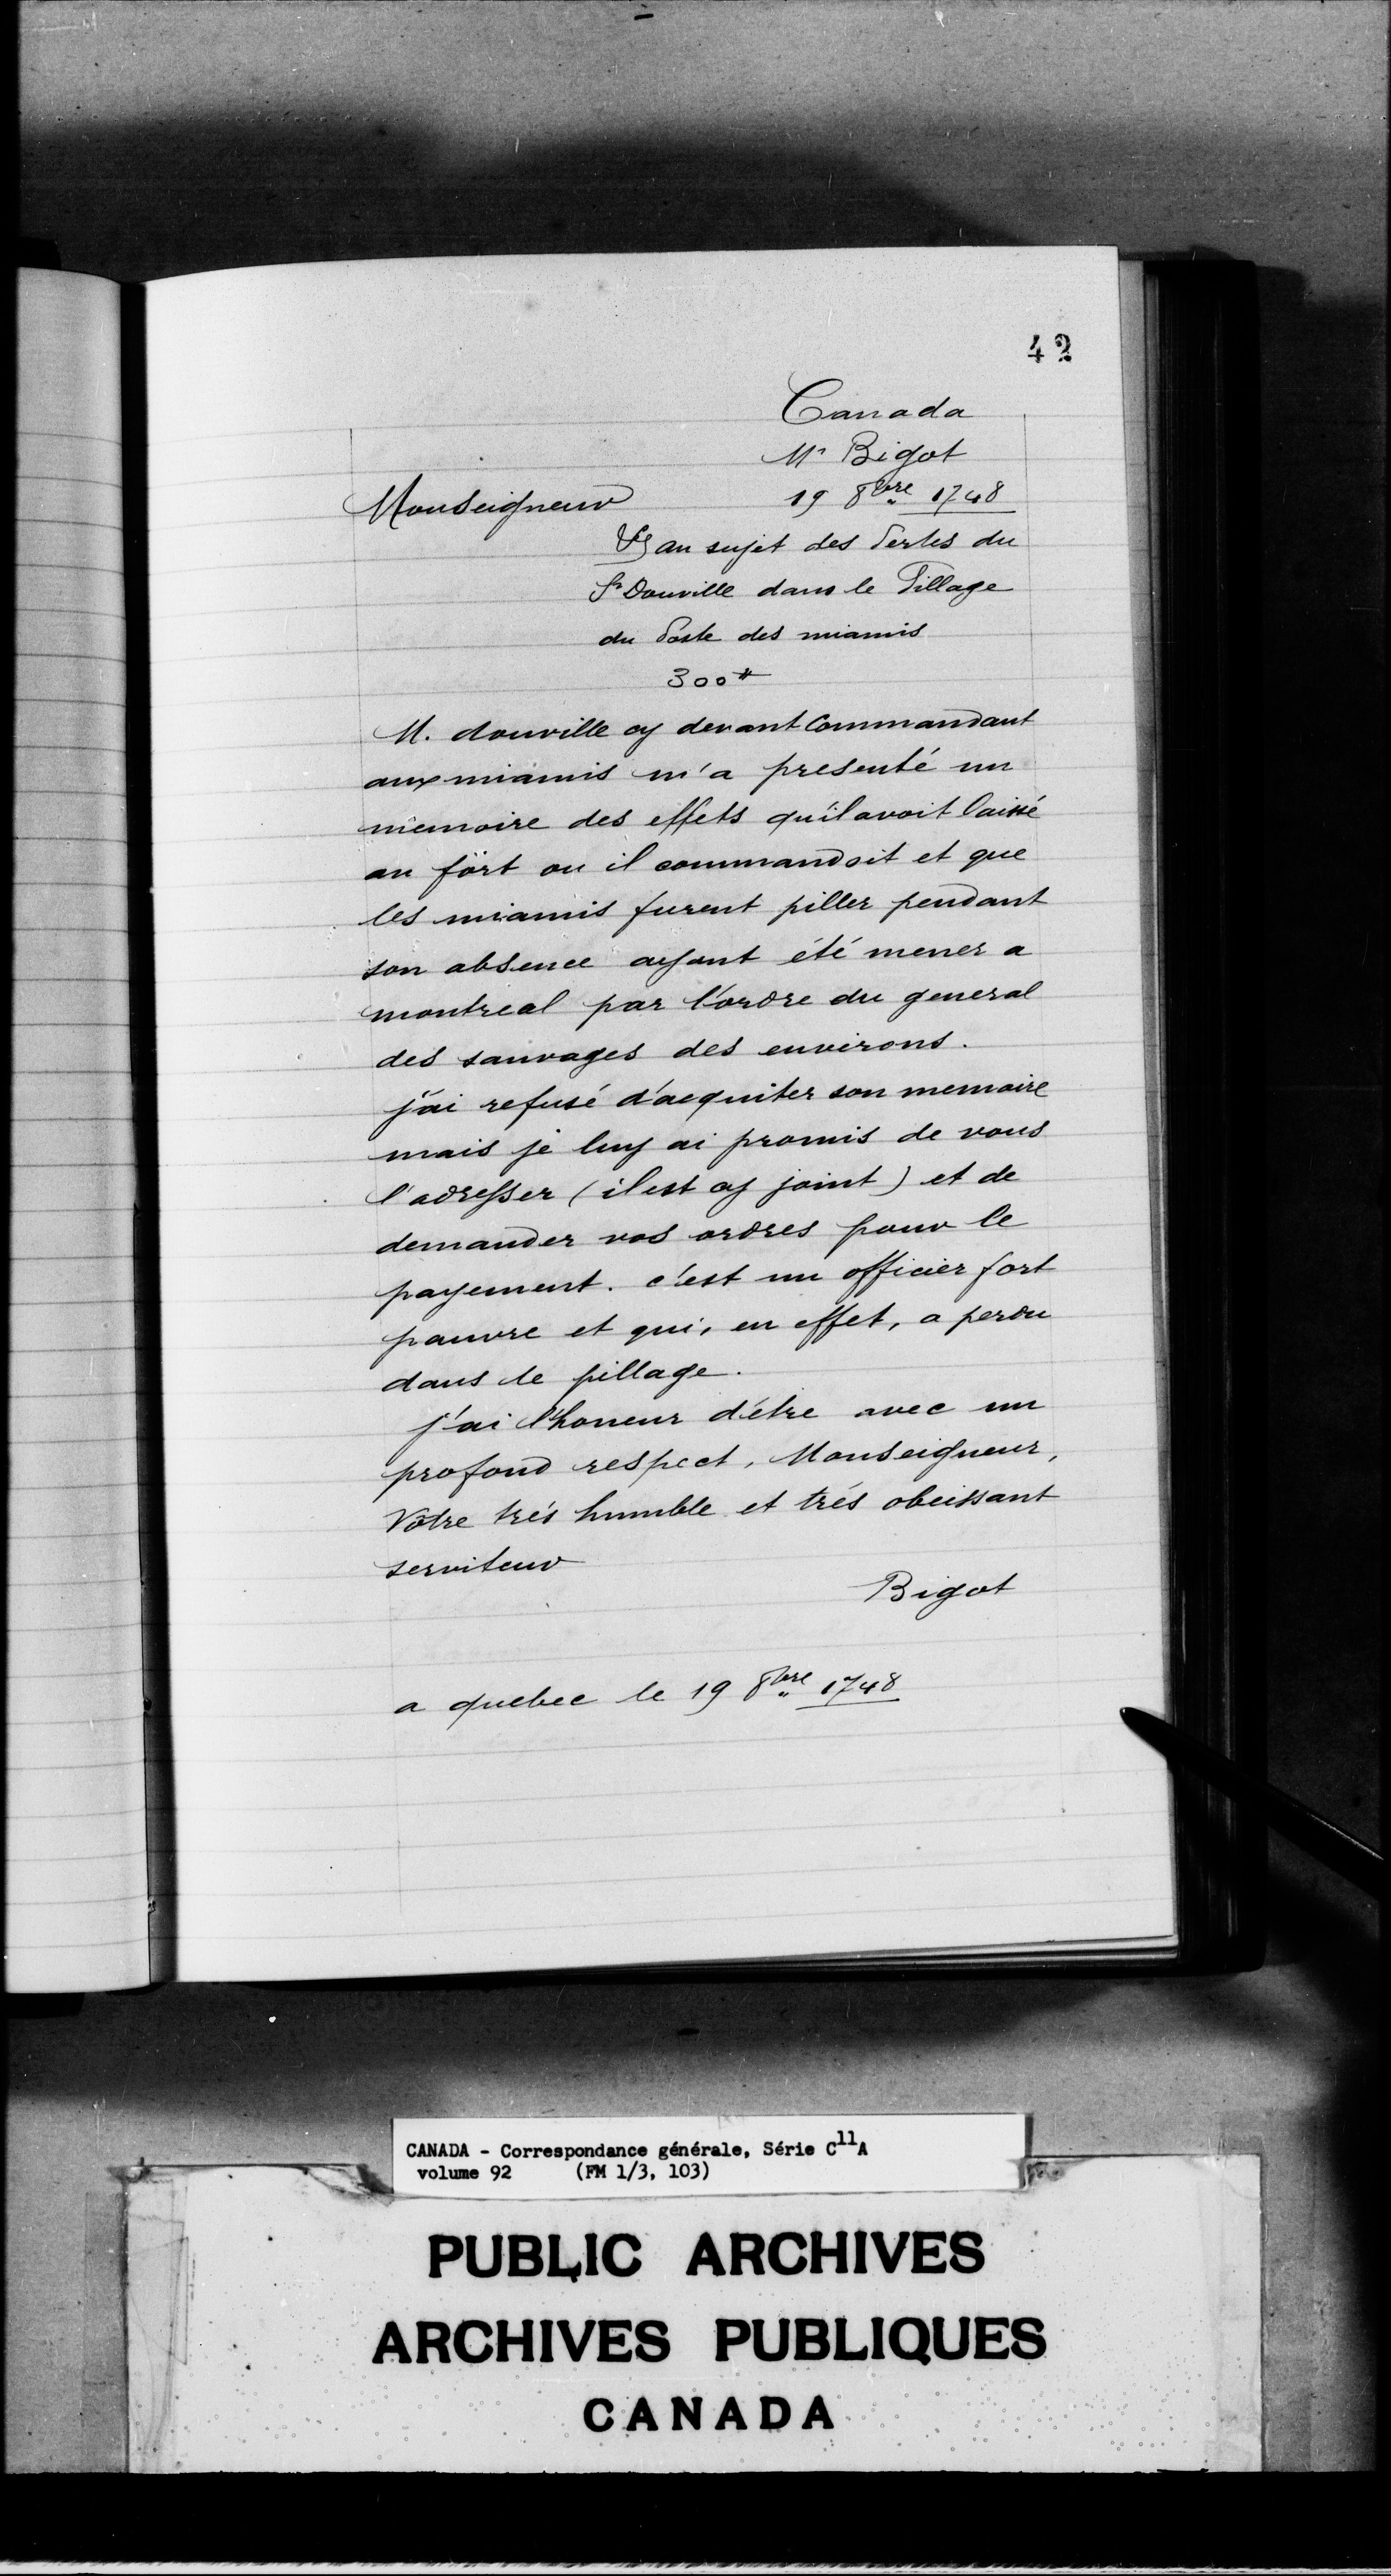 42
Canada
Mr Bigot
Monseigneur 19 8bre 1748
au sujet des Pertes du
Sr Douville dans le Pillage
du Poste des miamis
300#
M. douville cy devant Commandant
aux miamis m'a presenté un
memoire des effets qu'il avoit laissé
au fort ou il commandoit et que
les miamis furent piller pendant
son absence ayant été mener a
montreal par l'ordre du general
des sauvages des environs.
j'ai refusé d'acquiter son memoire
mais je luy ai promis de vous
l'adresser (il est cy joint) et de
demander vos ordres pour le
payement. c'est un officier fort
pauvre et qui, en effet, a perdu
dans le pillage.
j'ai l'honeur d'étre avec un
profond respect, Monseigneur,
Vôtre trés humble et trés obeissant
serviteur
Bigot
a quebec le 19 8bre 1748
CANADA - Correspondance générale, Série C11A
volume 92 (FM 1/3, 103)
PUBLIC ARCHIVES
ARCHIVES PUBLIQUES
CANADA